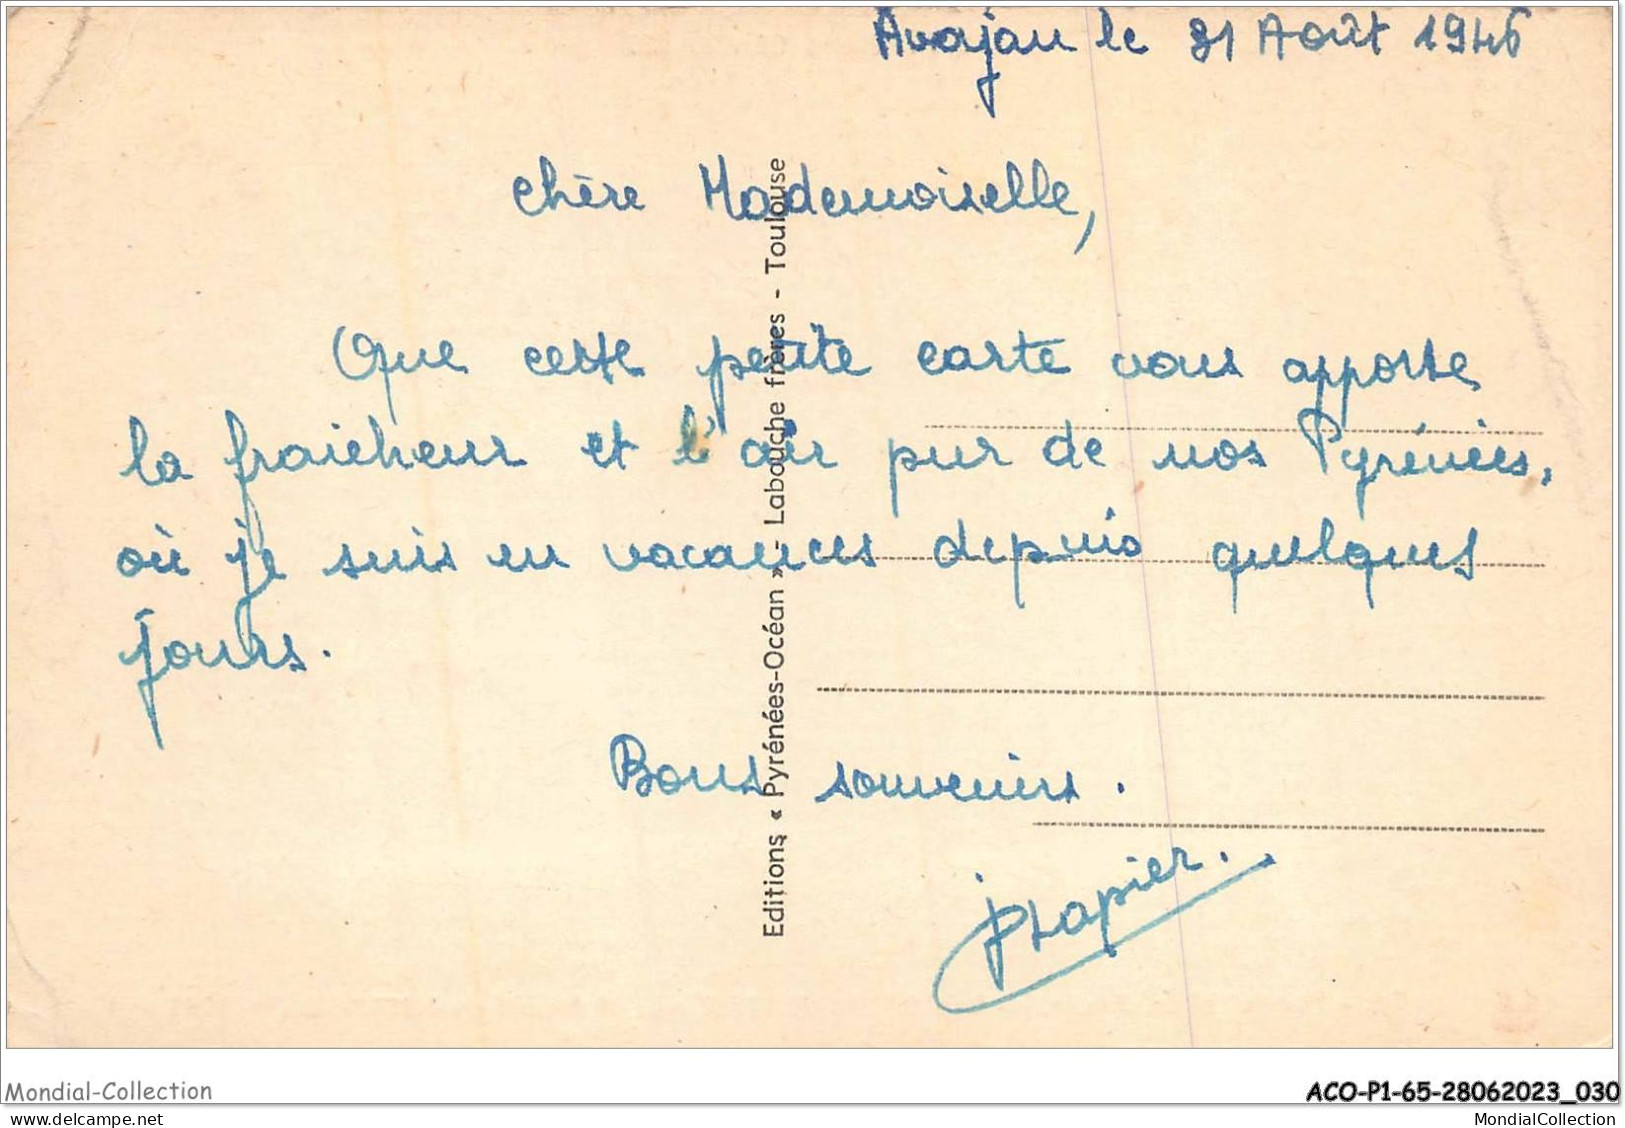 Avajan le 31 Août 1946
Chère Mademoiselle,
Que cette petite carte vous apporte
la fraicheur et l'air pur de nos Pyrénées,
où je suis en vacances depuis quelques
jours.
Bons souvenirs.
Editions « Pyrénées-Océan » - Labouche frères - Toulouse
Mondial-Collection
ACO-P1-65-28062023_030
MondialCollection
MondialCollection